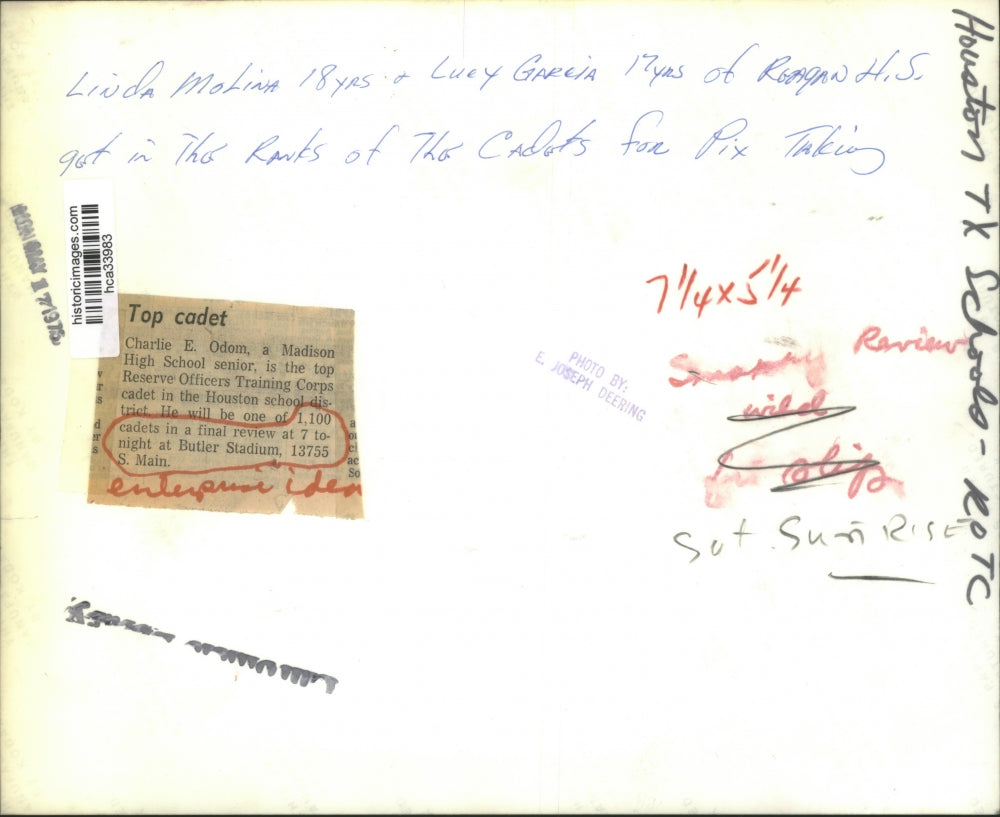 Linda Molina 18yrs + Lucy Garcia 17yrs of Reagan H.S.
get in The Ranks of The Cadets for Pix Taking
Houston TX Schools - ROTC
historicimages.com
hca33983
Top cadet
Charlie E. Odom, a Madison
High School senior, is the top
Reserve Officers Training Corps
cadet in the Houston school dis-
trict. He will be one of 1,100
cadets in a final review at 7 to-
night at Butler Stadium, 13755
S. Main.
enterprise idea
PHOTO BY:
E. JOSEPH DEERING
7 1/4 x 5 1/4
Review
Sat. SunRISE